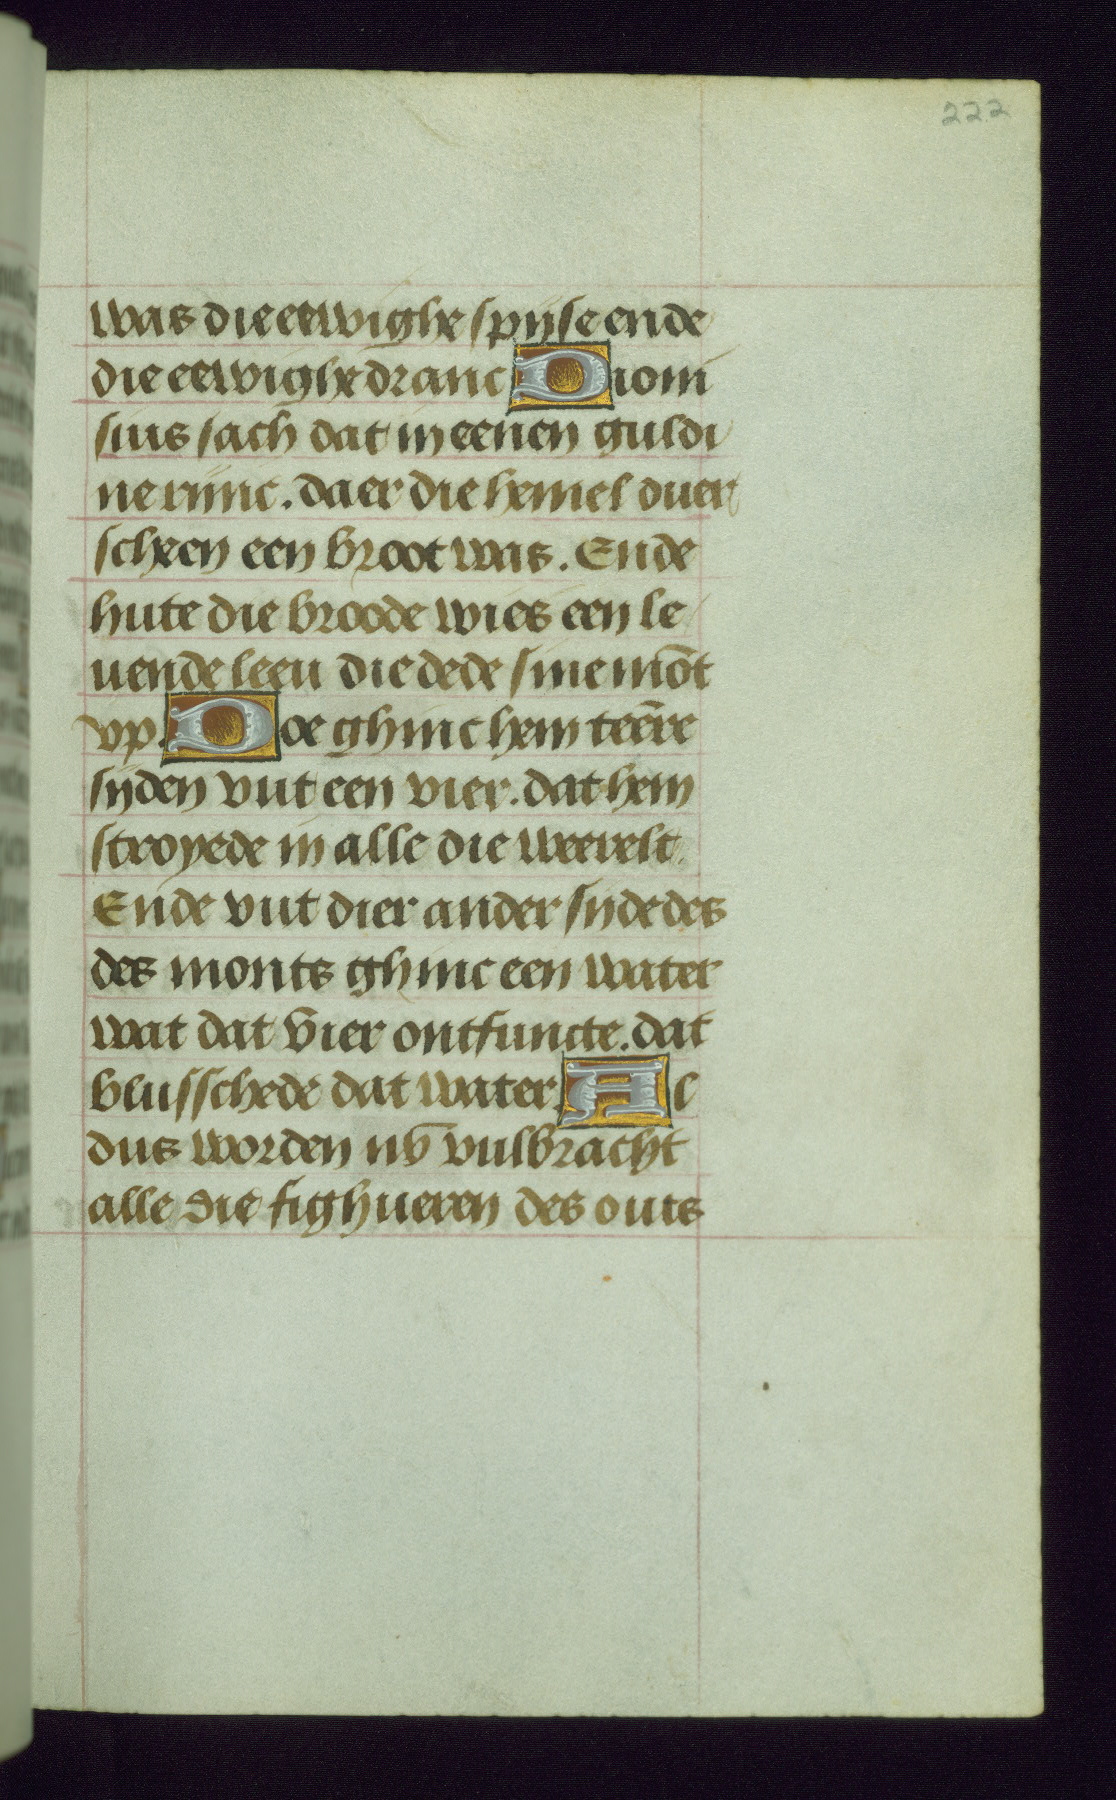 222
was die eewighe spijse ende
die eewighe dranc Dioni
sius sach dat in eenen guldi
ne rijnc. daer die hemel duer
scheen een broot was. Ende
hute die broode wies een le
uende leeu die dede sine mo̅t
vp. Doe ghinc hem tee̅re
sijden vut een vier. dat hem
stroyede in alle die weerelt.
Ende vut dier ander sijde des
des monts ghinc een water
wat dat vier ontfuncte. dat
blusschede dat water. Al
dus worden nv vulbracht
alle die fighueren des outs